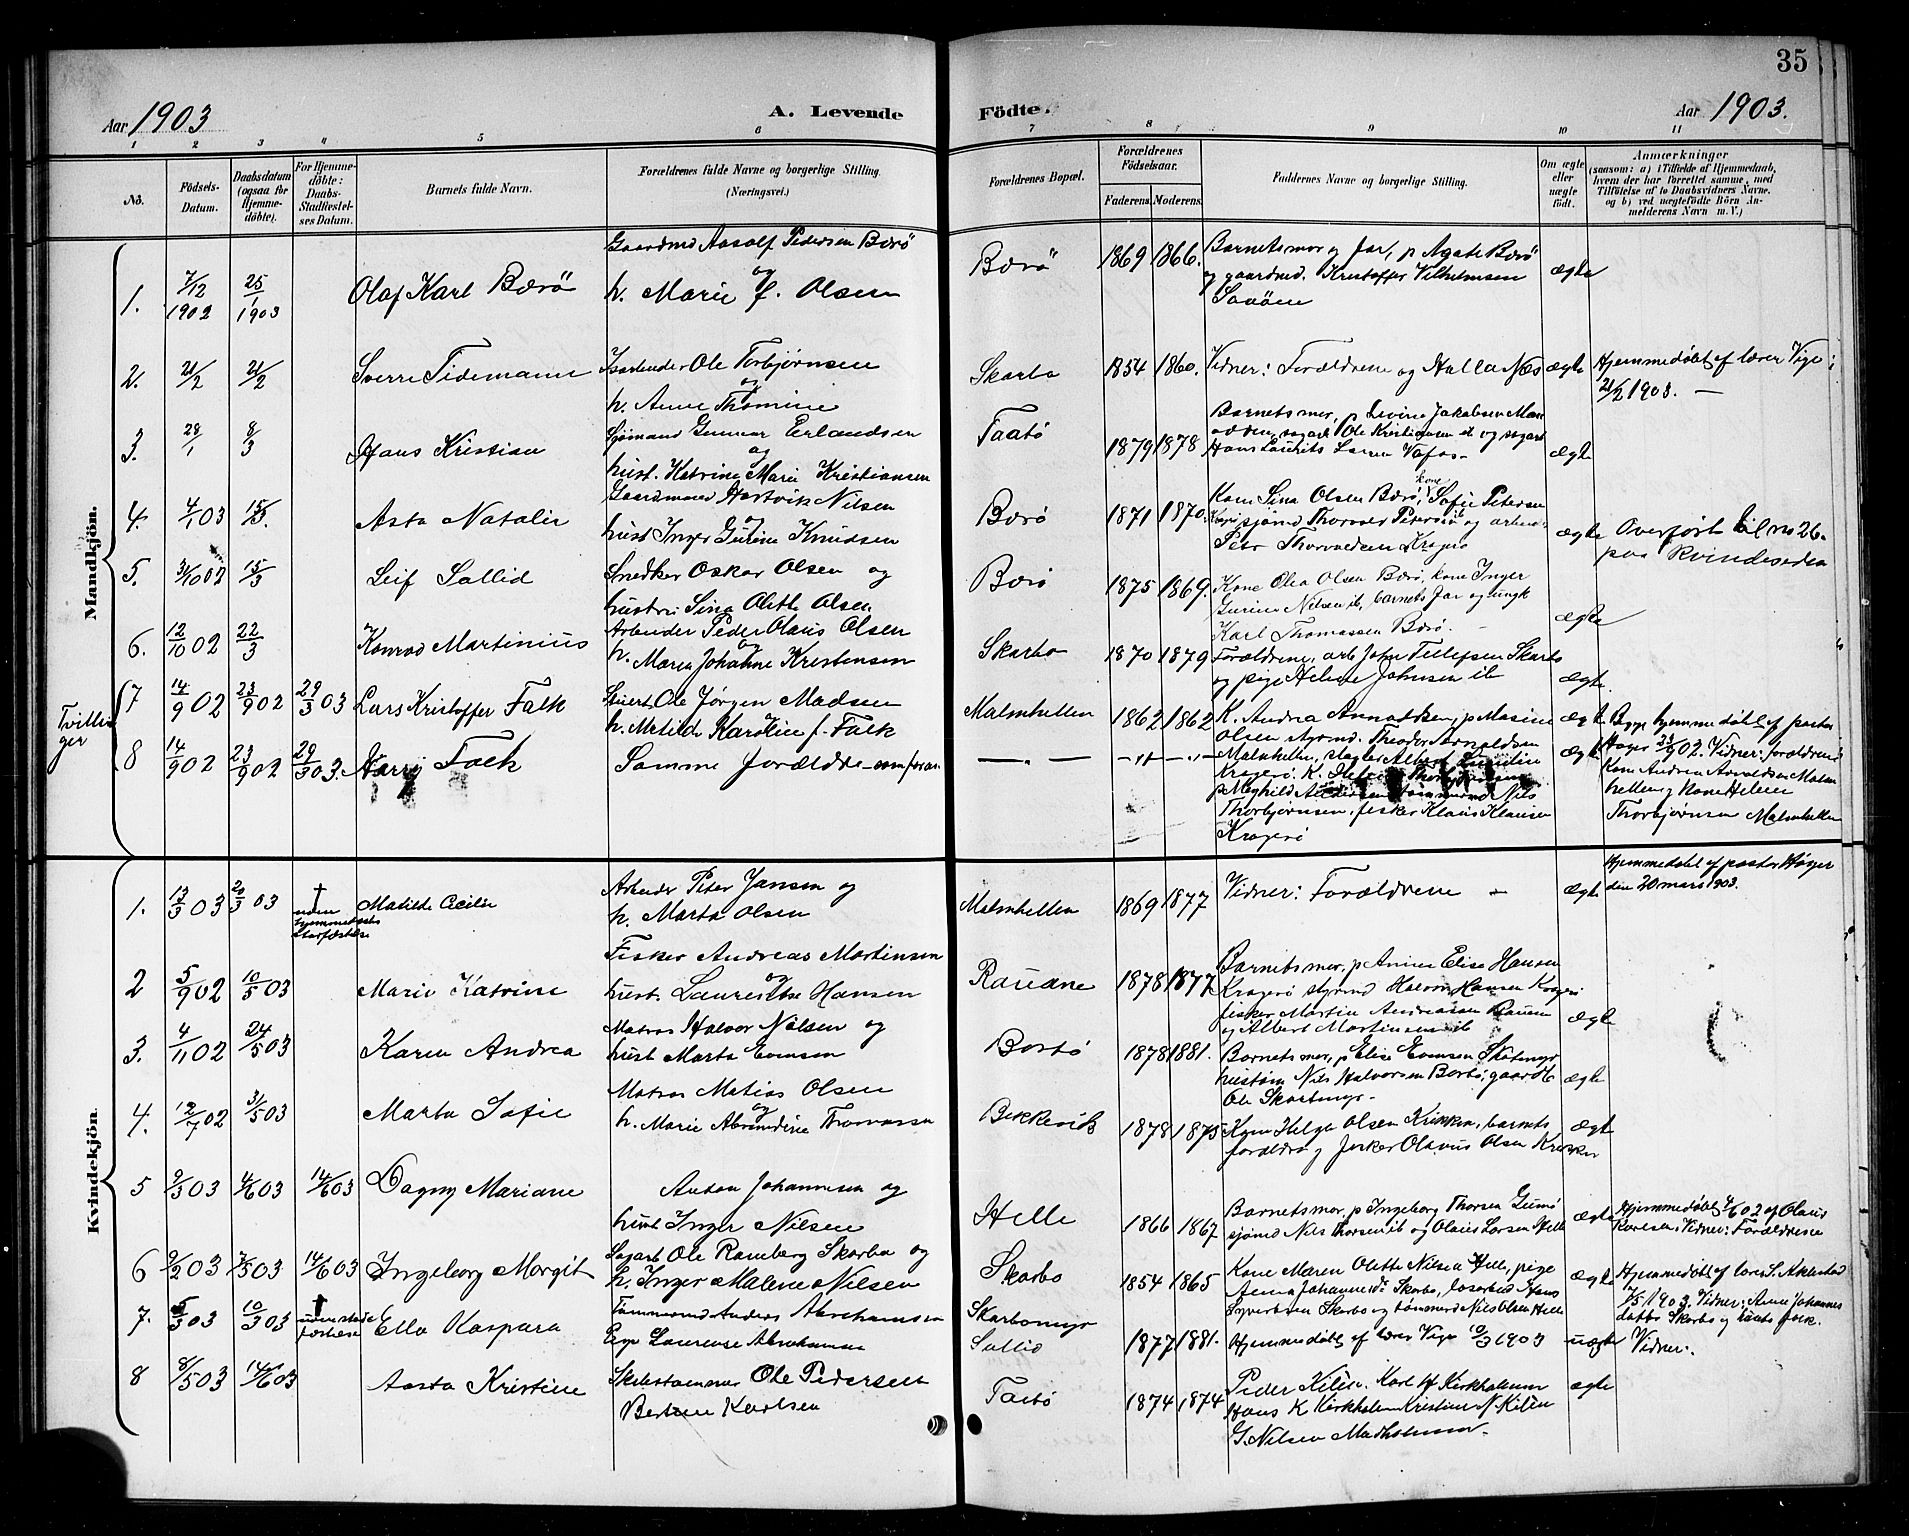 35
Aar 1903
A. Levende
Födte.
Aar 1903.
1 2 3 4 5 6 7 8 9 10 11
No.
Födsels-
Datum.
Daabsdatum
(ogsaa for
Hjemme-
döbte).
For Hjemme-
döbte:
Daabs-
Stadfæstel-
ses Datum.
Barnets fulde Navn.
Forældrenes fulde Navne og borgerlige Stilling.
(Næringsvei.)
Forældrenes Bopæl.
Forældrenes
Födselsaar.
Faderens
Moderens
Faddernes Navne og borgerlige Stilling.
Om ægte
eller
uægte
födt.
Anmærkninger
(saasom: a) i Tilfælde af Hjemmedaab,
hvem der har forrettet samme, med
Tilföielse af to Daabsvidners Navne,
og b) ved uægtefödte Börn An-
melderens Navn m. V.)
Mandkjön.
1. 7/12 1902 25/1 1903
Olaf Karl Bærö
Gaardmd Aasolf Pedersen Bærö
og
h. Marie f. Olsen
Bærö
1869 1866.
Barnets mor og far, p Agate Bærö
og gaardmd. Kristoffer Vilhelmsen
ægte
2. 21/2 21/2
Sverre Tidemann
Ole Torbjørnsen
og
h. Anne Thomine
Skarbo
1854 1860.
Vidner: Forældrene og Halla Næs
ægte
Hjemmedøbt af lærer Vige
21/2 1903. —
3. 28/1 8/3
Hans Kristian
Sjømand Gunnar Erlandsen
og
hust. Katrine Marie Kristiansen
Taatö
1879 1878
Barnets mor, p
ægte
4. 4/1 03 15/3.
Asta Natalie
Gaardmand Hartvik Nilsen
og
hust Inger Gurine Knudsen
Bærö
1871 1870.
Kone Sina Olsen Bærö, kone Sofie Petersen
Peter Thorvaldsen Kragerö
ægte
Overført til no 26.
paa Kvindesiden
5. 31/10 02 15/3
Leif Sollid
Snedker Oskar Olsen og
hustru Sina Olette Olsen
Bærö
1875 1869.
Kone Olea Olsen Bærö, kone Inger
Gurine Nilsen ib, barnets far og ungk
Karl Thomassen Bærö.
ægte
6. 12/10 02 22/3
Konrad Martinius
Arbeider Peder Olaus Olsen
og
h. Maren Johanne Kristensen
Skarbo
1870 1879
Forældrene, arb John Tellefsen Skarbo
og pige Helene Johnsen ib
ægte.
Tvillin
ger
7 14/9 02 23/9 02 29/3 03
Lars Kristoffer Falk
Stuert Ole Jörgen Madsen
h. Matilde Karoline f. Falk
Malmhellen
1862 1862
ægte
Begge hjemmedøbt af pastor
Høyer 23/9 02. Vidner: forældrene
Kone Andrea Arnoldsen Malm
hellen og Kone Helene
Thorbjørnsen Malmhellen
8 14/9 02 23/9 02 29/3 03.
Harry Falk
Samme forældre som foran
— „ — — „ — — „ —
Malmhellen, slagter Albert
Thorbjørnsen, fisker Klaus Klausen
Kragerö
ægte
Kvindekjön.
1. 13/3 03 20/3 03
† uden hjemmedaabs
stadfæstelse
Matilde Cecilie
Arbeider Peter Jansen og
h. Marta Olsen
Malmhellen
1869 1877
Vidner: Forældrene —
ægte
Hjemmedøbt af pastor Høyer
den 20 mars 1903.
2 5/9 02 10/5 03
Marie Katrine
Fisker Andreas Martinsen
og
hust. Hansen
Rauane
1878 1877
Barnets mor, p Anne Elise Hansen
Kragerö styrmd Halvor Hansen Kragerö
fisker Martin Andreassen
og Albert Martinsen ib
ægte
3. 4/11 02 24/5 03
Karen Andrea
Matros Halvor Nilsen og
hust Marta Evensen
Bortö
1878 1881.
Barnets mor, p Elise Evensen
Nils Halvorsen Bortö, gaardb
Ole
ægte
4. 12/7 02 31/5 03
Marta Sofie
Matros Matias Olsen
og
h. Marie
Bekkevik
1878 1875
Kone Helga Olsen Krikken, barnets
forældre og fisker Olavus Olsen Krikken
ægte
5 2/3 03 4/6 03 14/6 03
Dagny Mariane
Anton Johannesen og
hust Inger Nilsen
Helle
1866 1867
Barnets mor, p Ingeborg Thorsen Gumö
sjömd Nils Thorsen ib og Olaus Larsen Helle
ægte
Hjemmedøbt 4/6 02 af Olaus
Vidner: Forældrene
6 2/2 03 7/5 03 14/6 03
Ingeborg Margit
Sagarb Ole Ramberg Skarbo og
h. Inger Malene Nilsen
Skarbo
1854 1865
Kone Maren Olette Nilsen Helle, pige
Anna Johannesdr Skarbo, Hans
Syvertsen Skarbo og tømmermd Nils Olsen Helle
ægte
Hjemmedøbt af lærer S. Aklestad
7/5 1903. Vidner: Anne Johannes
datter Skarbo og
7. 5/3 03 10/3 03
† uden stad
fæstelse
Ella Kaspara
Tømmermd Anders Abrahamsen
Laurense Abrahamsen
Skarbomyr
Sollid
1877 1881.
Hjemmedøbt af lærer Vige 10/3 1903
uægte
Vidner:.
8 8/5 03 14/6 03
Aasta Kristine
Ole Pedersen
Karlsen
Taatö
1874 1874
Peder Kilen. Karl H Kirkholmen
Hans K Kirkholmen Kristian N. Kilen
G. Nilsen
ægte